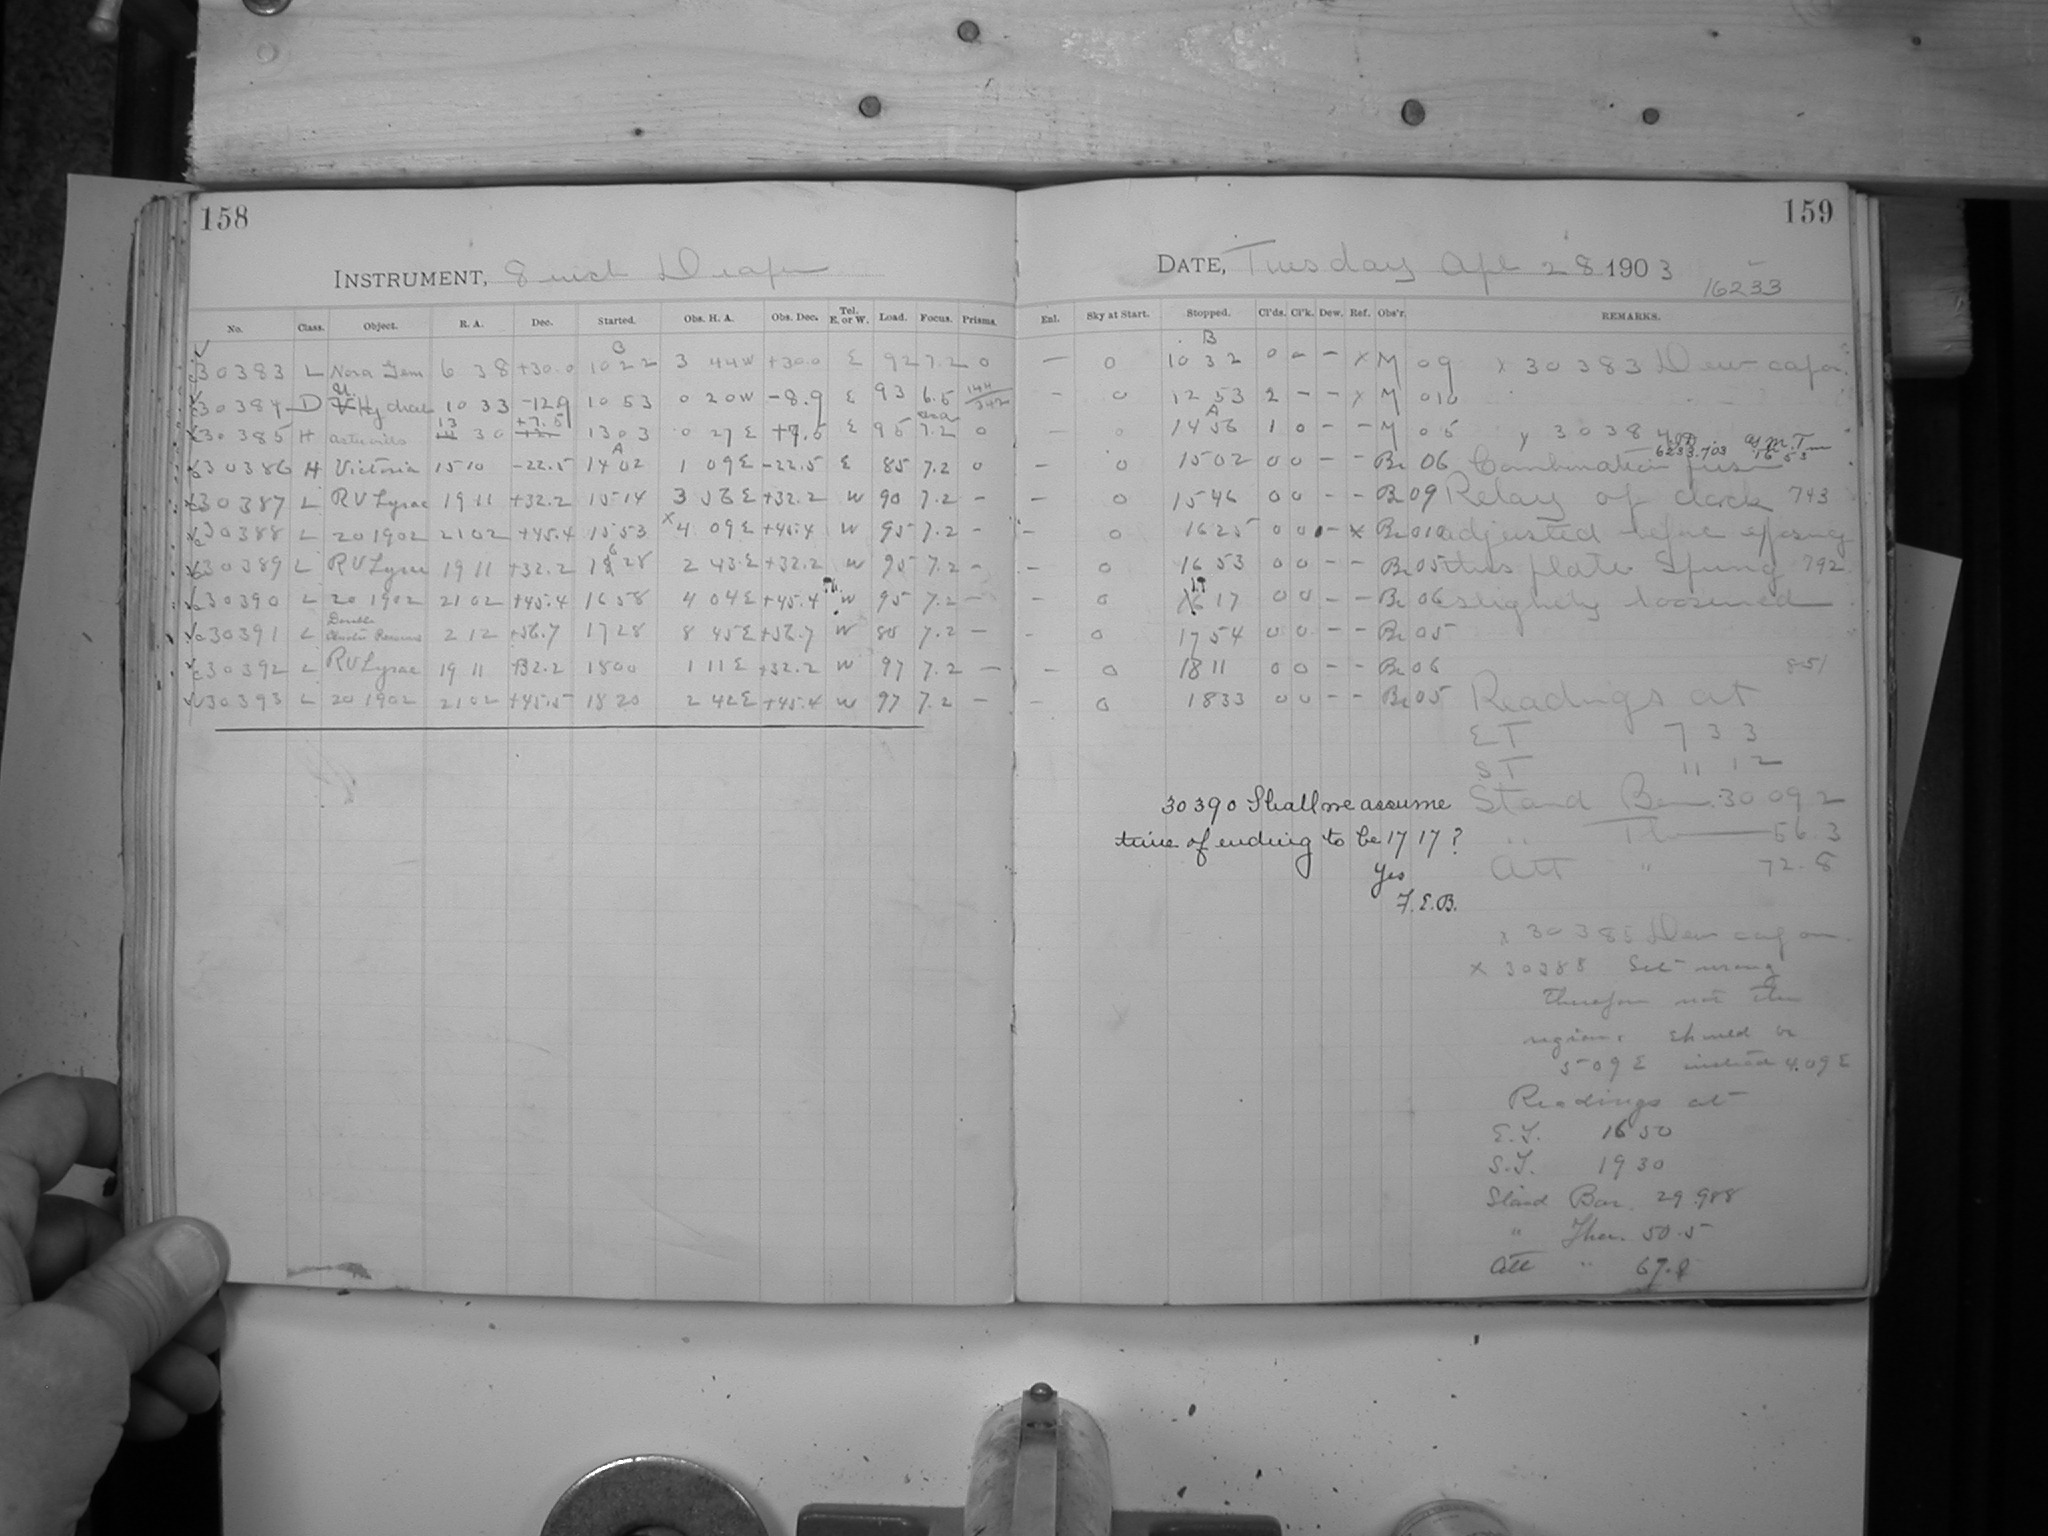 158
159
INSTRUMENT, 8 inch Draper
DATE, Tuesday Apl 28 1903
16233
No. Class. Object. R. A. Dec. Started. Obs. H. A. Obs. Dec. Tel. E. or W. Load. Focus. Prisms. Enl. Sky at Start. Stopped. Cl'ds. Cl'k. Dew. Ref. Obs'r. REMARKS.
30383 L Nova Gem 6 38 +30.0 B 10 22 3 44 W +30.0 E 92 7.2 0 — 0 B 10 32 0 — — x M 09 x 30383 Dew cap on
30384 D U Hydrae 10 33 -12.9 10 53 0 20 W -8.9 E 93 6.5 — 0 12 53 2 — — x M 010
30385 H 13 30 +7.5 13 03 0 27 E +7.5 E 95 7.2 0 0 A 14 56 1 0 — — M 05 x 30384
30386 H Victoria 15 10 -22.5 A 14 02 1 09 E -22.5 E 85 7.2 0 — 0 15 02 0 0 — — Br 06 Combination fuse 6233.703 G.M.T. 16 53
30387 L RV Lyrae 19 11 +32.2 15 14 3 56 E +32.2 W 90 7.2 — — 0 15 46 0 0 — — Br 09 Relay of clock 743
30388 L 20 1902 21 02 +45.4 15 53 x 4 09 E +45.4 W 95 7.2 — — 0 16 25 0 0 — x Br 010 adjusted before exposing
30389 L RV Lyrae 19 11 +32.2 16 28 2 43 E +32.2 W 95 7.2 — — 0 16 53 0 0 — — Br 05 this plate. Spring 792
30390 L 20 1902 21 02 +45.4 16 58 4 04 E +45.4 W 95 7.2 — — 0 17 17 0 0 — — Br 06 slightly loosened
30391 L Double Cluster Perseus 2 12 +56.7 17 28 8 45 E +56.7 W 80 7.2 — — 0 17 54 0 0 — — Br 05
30392 L RV Lyrae 19 11 +32.2 18 00 1 11 E +32.2 W 97 7.2 — — 0 18 11 0 0 — — Br 06 851
30393 L 20 1902 21 02 +45.5 18 20 2 42 E +45.4 W 97 7.2 — — 0 18 33 0 0 — — Br 05
Readings at
E T 7 33
S T 11 12
Stand Bar. 30 092
" Th — 56.3
Att " 72.8
30390 Shall we assume
time of ending to be 17 17?
Yes
F.E.B.
x 30385 Dew cap on.
x 30388 Set wrong
therefore not the
region. Should be
5 09 E instead 4.09 E
Readings at
E.T. 16 50
S.T. 19 30
Stand Bar. 29.988
" Ther. 50.5
Att " 67.8